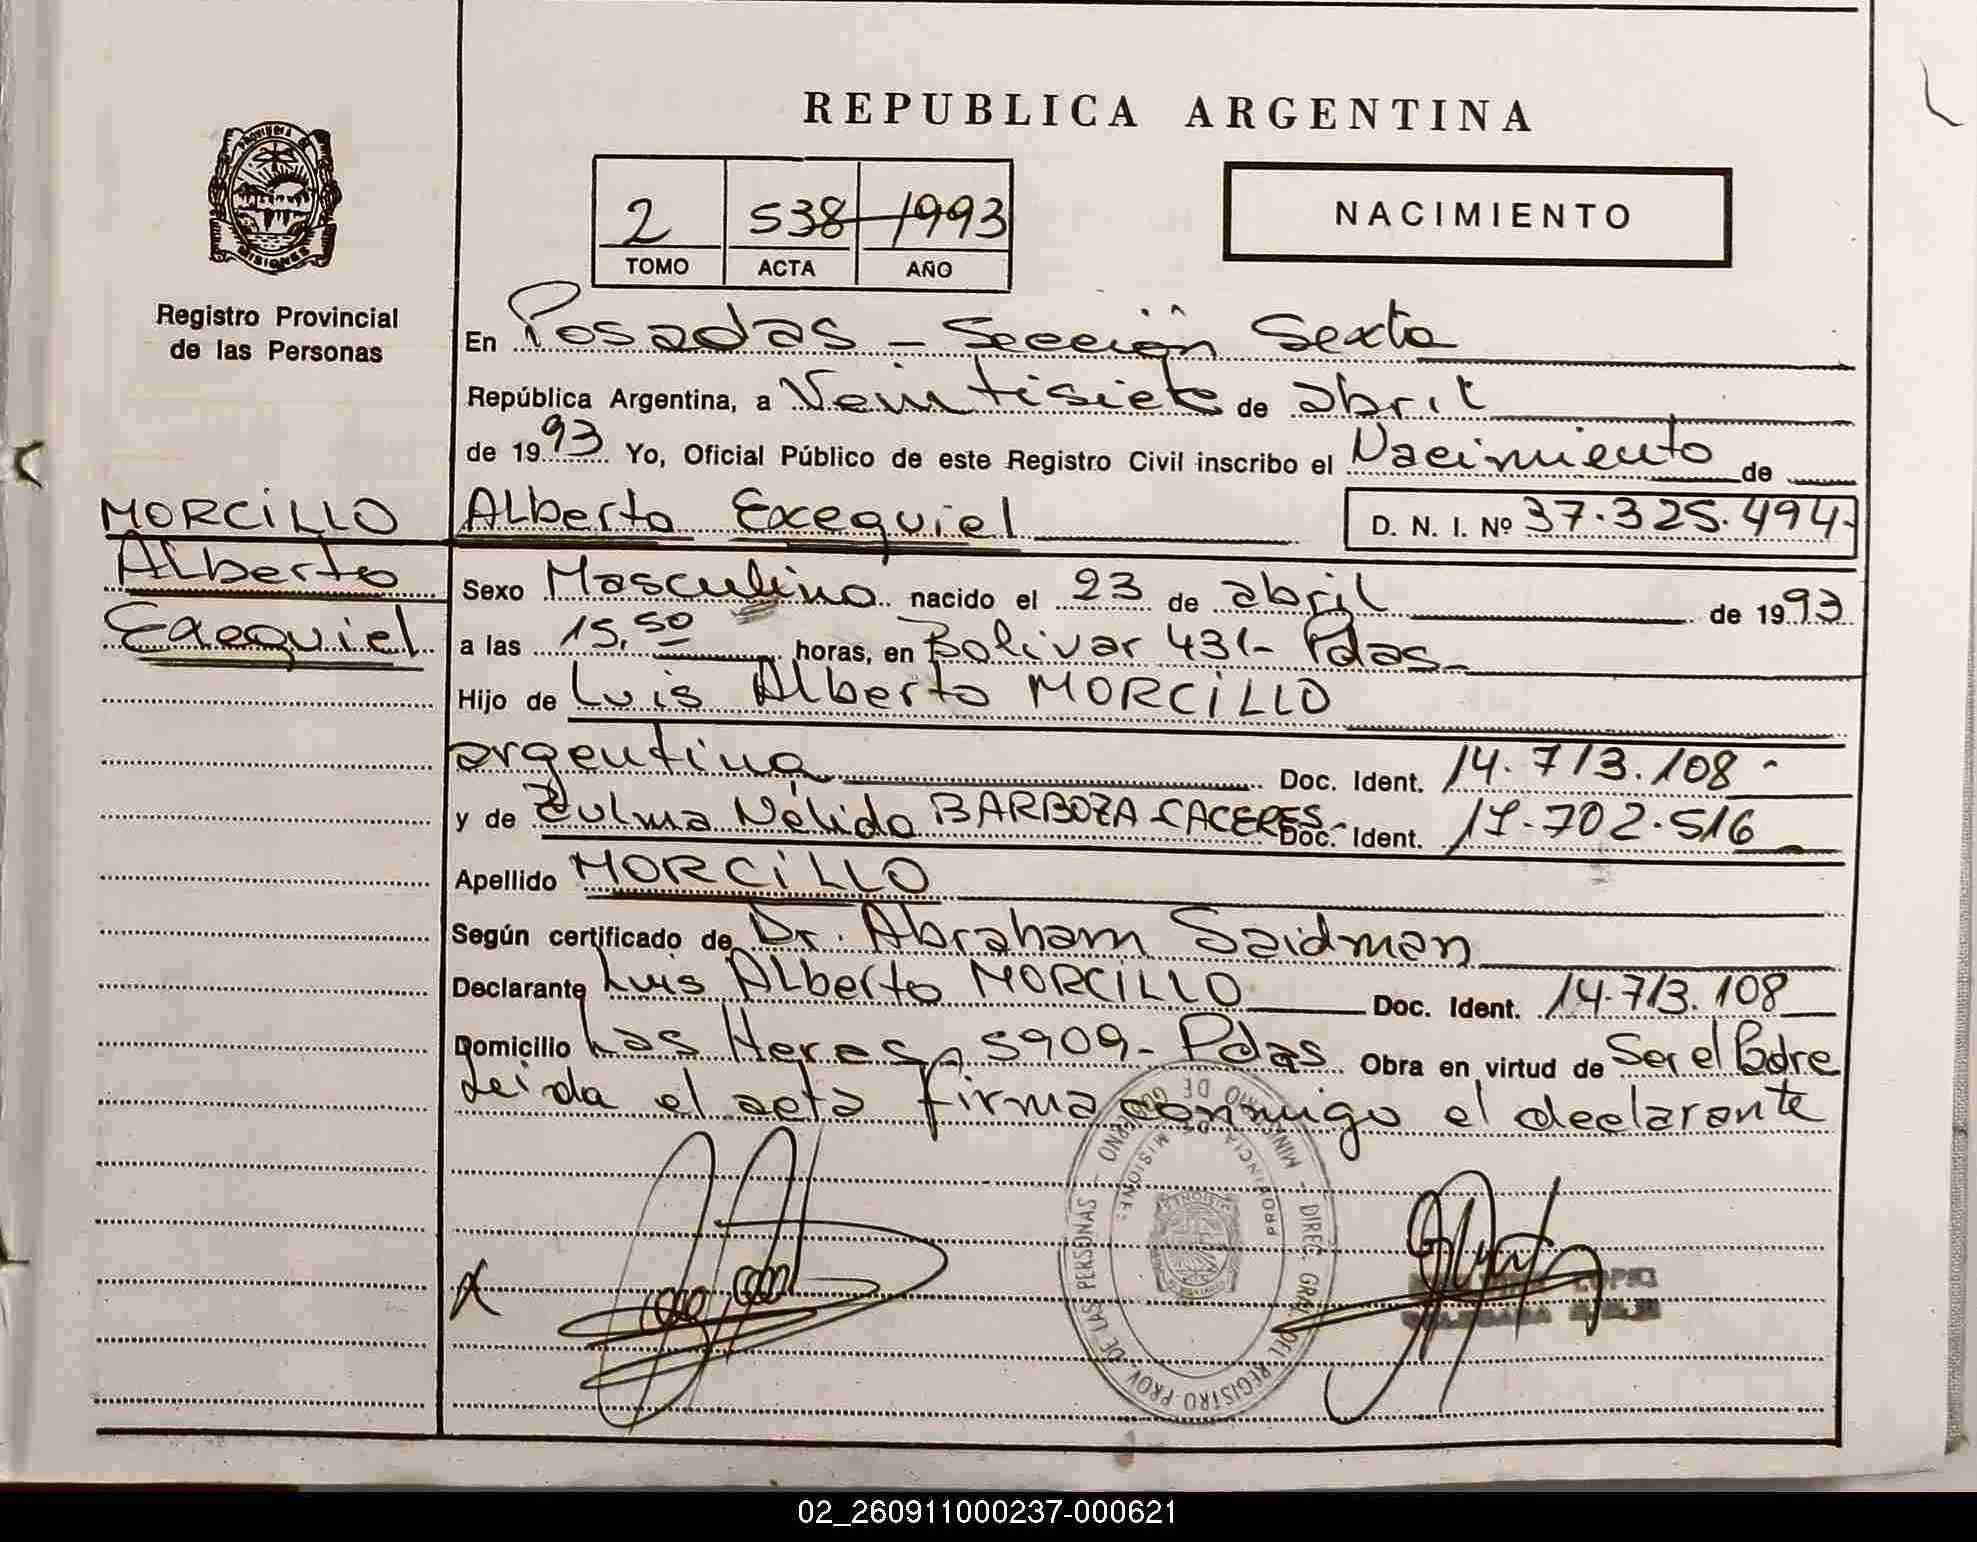 REPUBLICA ARGENTINA
PROVINCIA DE
MISIONES
Registro Provincial
de las Personas
2 538 1993
TOMO ACTA AÑO
NACIMIENTO
En Posadas - Sección Sexta
República Argentina, a Veintisiete de abril
de 1993 Yo, Oficial Público de este Registro Civil inscribo el Nacimiento de
MORCILLO
Alberto
Exequiel
Alberto Exequiel D. N. I. Nº 37.325.494-
Sexo Masculino nacido el 23 de abril de 1993
a las 15,50 horas, en Bolivar 431- Pdas-
Hijo de Luis Alberto MORCILLO
argentina Doc. Ident. 14.713.108-
y de Zulma Nélida BARBOZA CACERES- Doc. Ident. 17.702.516
Apellido MORCILLO
Según certificado de Dr. Abraham Saidman
Declarante Luis Alberto MORCILLO Doc. Ident. 14.713.108
Domicilio Las Heras 5909- Pdas Obra en virtud de Ser el Padre
Leida el acta firma conmigo el declarante
MINISTERIO DE GOBIERNO - DIREC. GRAL. DEL REGISTRO PROV. DE LAS PERSONAS -
PROVINCIA DE MISIONES
02_260911000237-000621